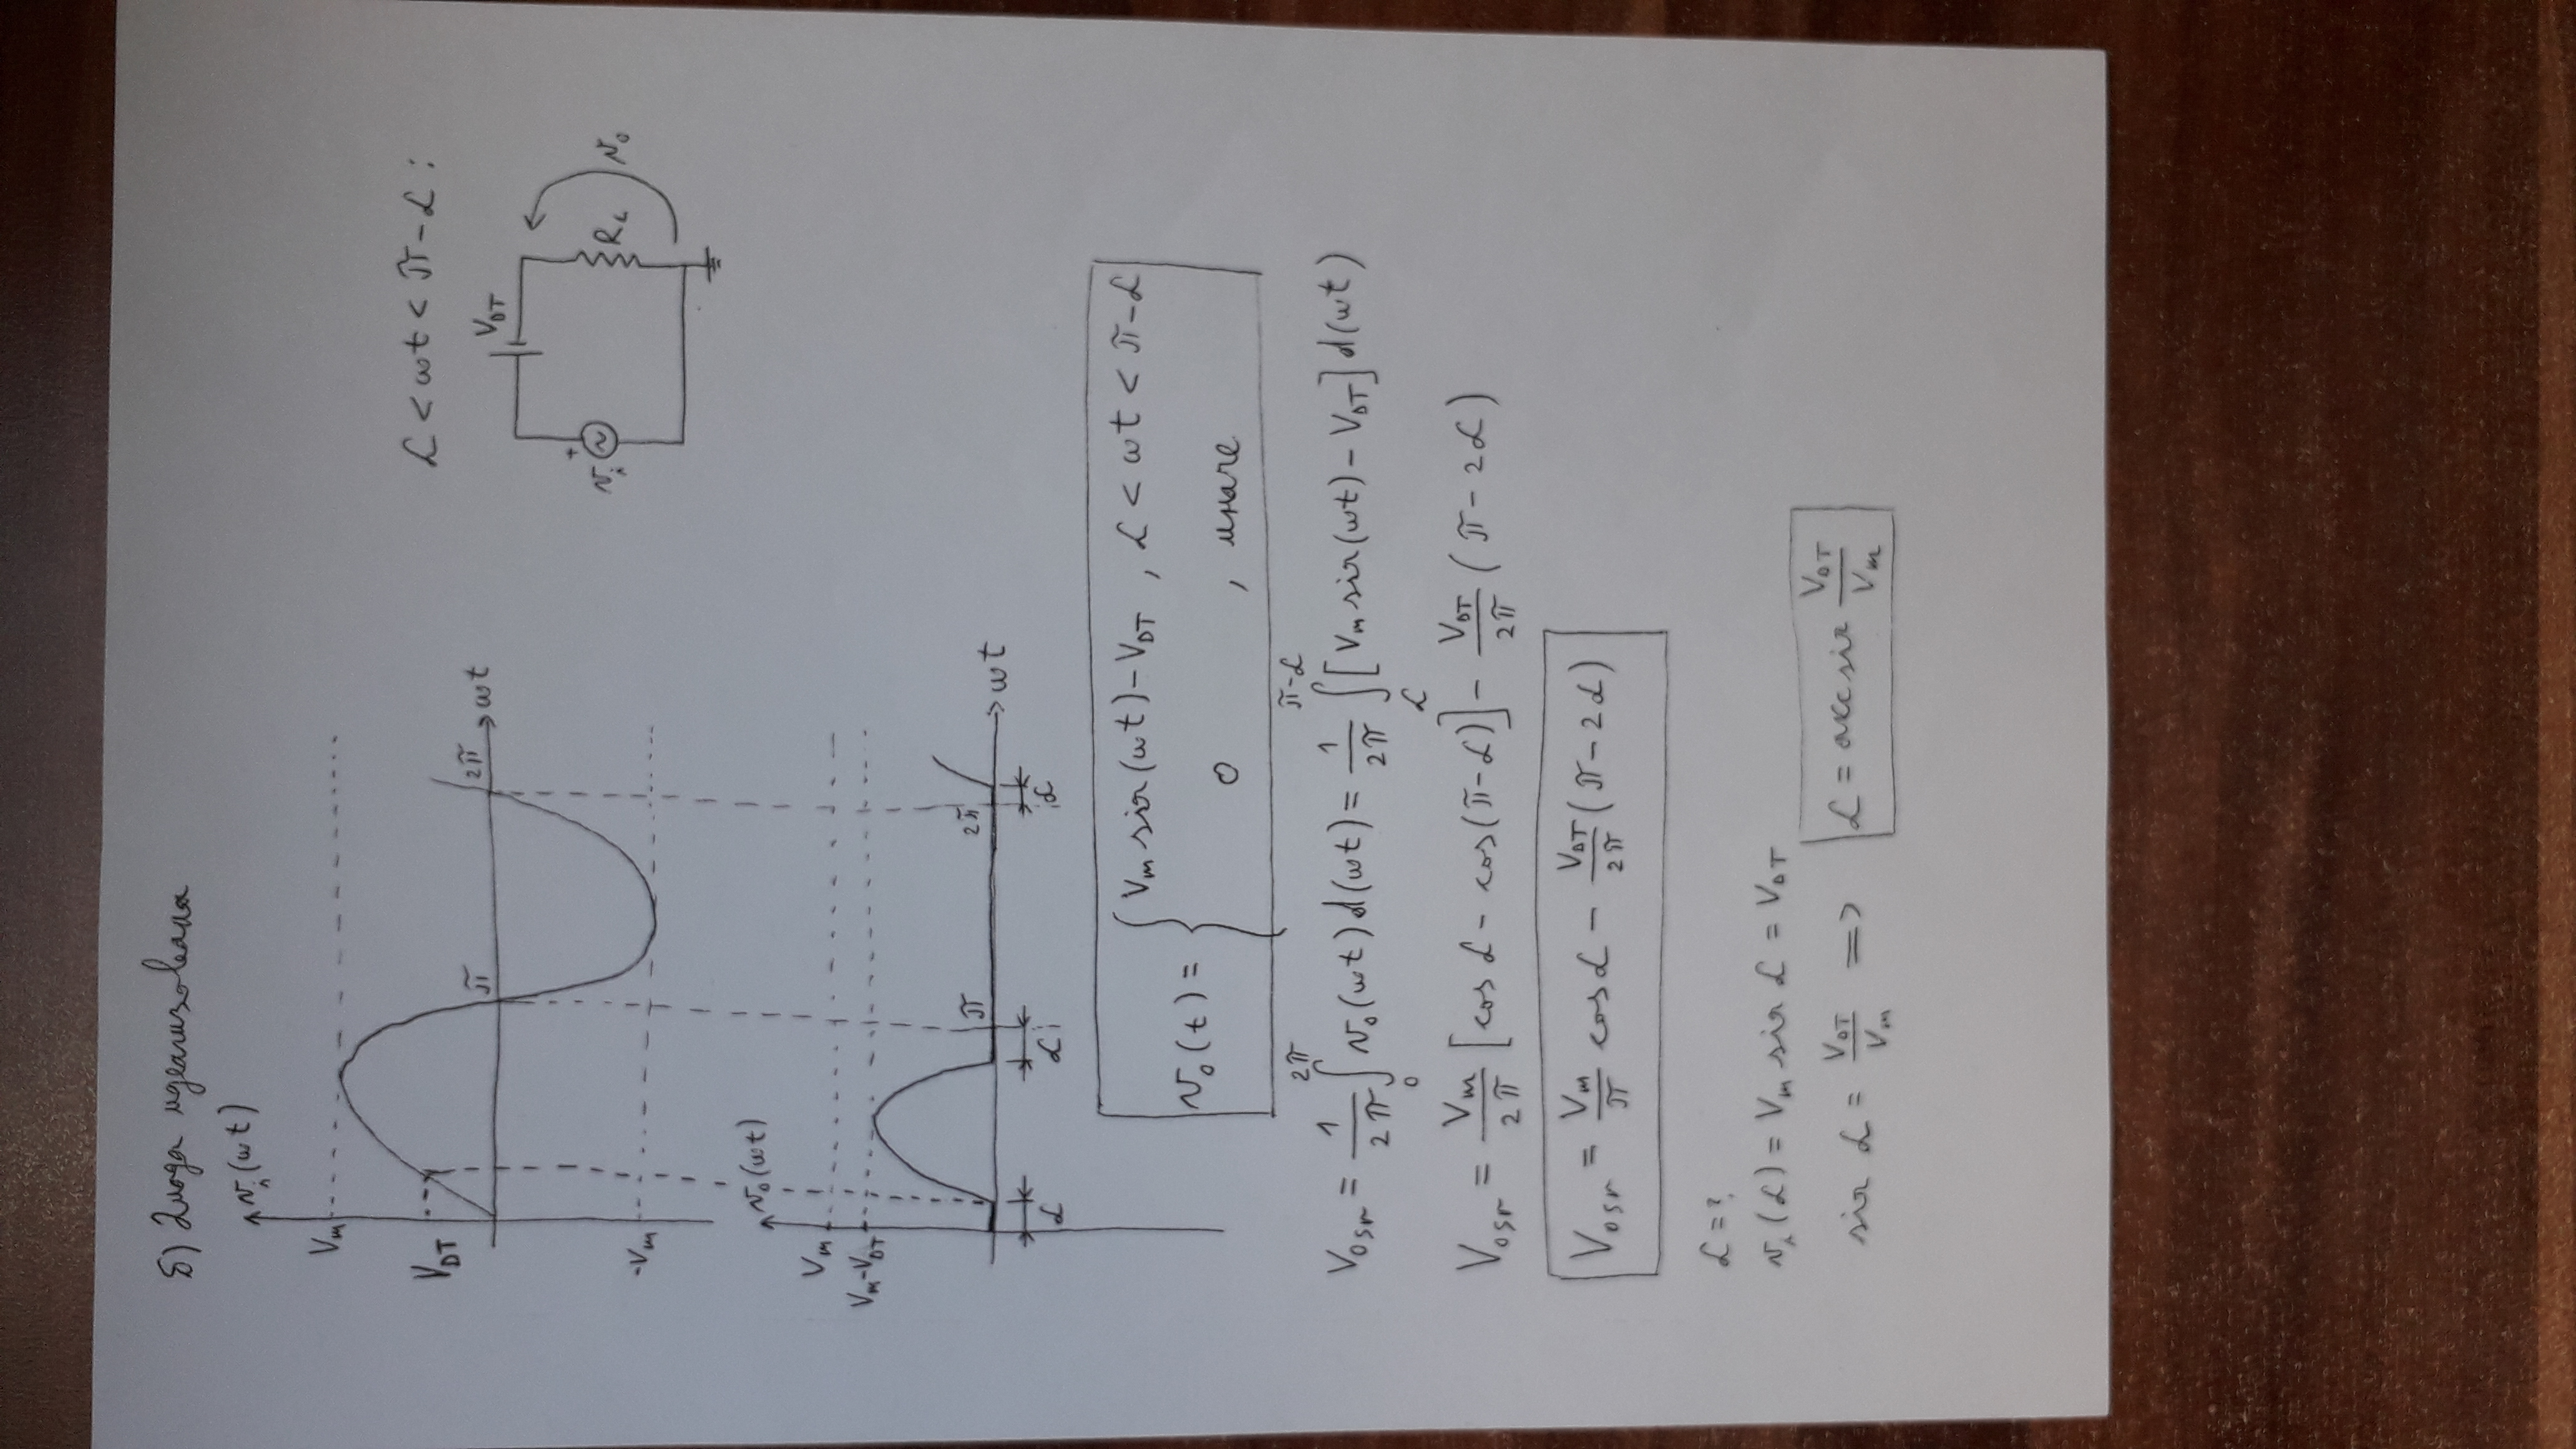 б) Диода идеализована
vᵢ(ωt)
Vm
VDT
π
2π
ωt
-Vm
α < ωt < π-α :
VDT
+
vᵢ
~
RL
v₀
v₀(ωt)
Vm
Vm-VDT
π
2π
ωt
α
α
α
v₀(t) = { Vm sin(ωt) - VDT , α < ωt < π-α
0 , иначе
Vosr = 1/2π ∫₀^2π v₀(ωt) d(ωt) = 1/2π ∫α^π-α [Vm sin(ωt) - VDT] d(ωt)
Vosr = Vm/2π [cos α - cos(π-α)] - VDT/2π (π-2α)
Vosr = Vm/π cos α - VDT/2π (π-2α)
α = ?
vᵢ(α) = Vm sin α = VDT
sin α = VDT/Vm => α = arcsin VDT/Vm